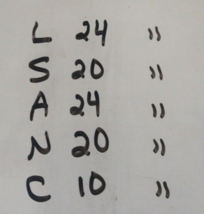 L 24 "
S 20 "
A 24 "
N 20 "
C 10 "